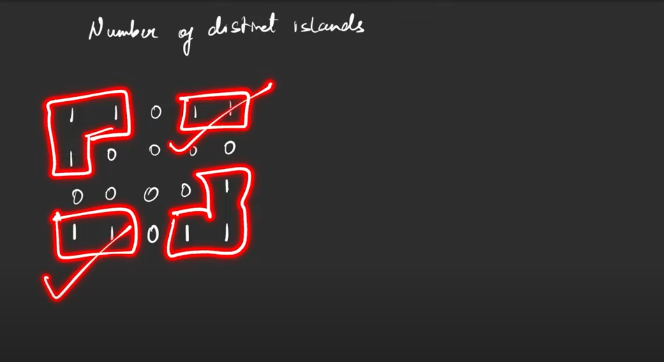 Number of distinct islands
1 1 0 1 1
1 0 0 0 0
0 0 0 0 1
1 1 0 1 1